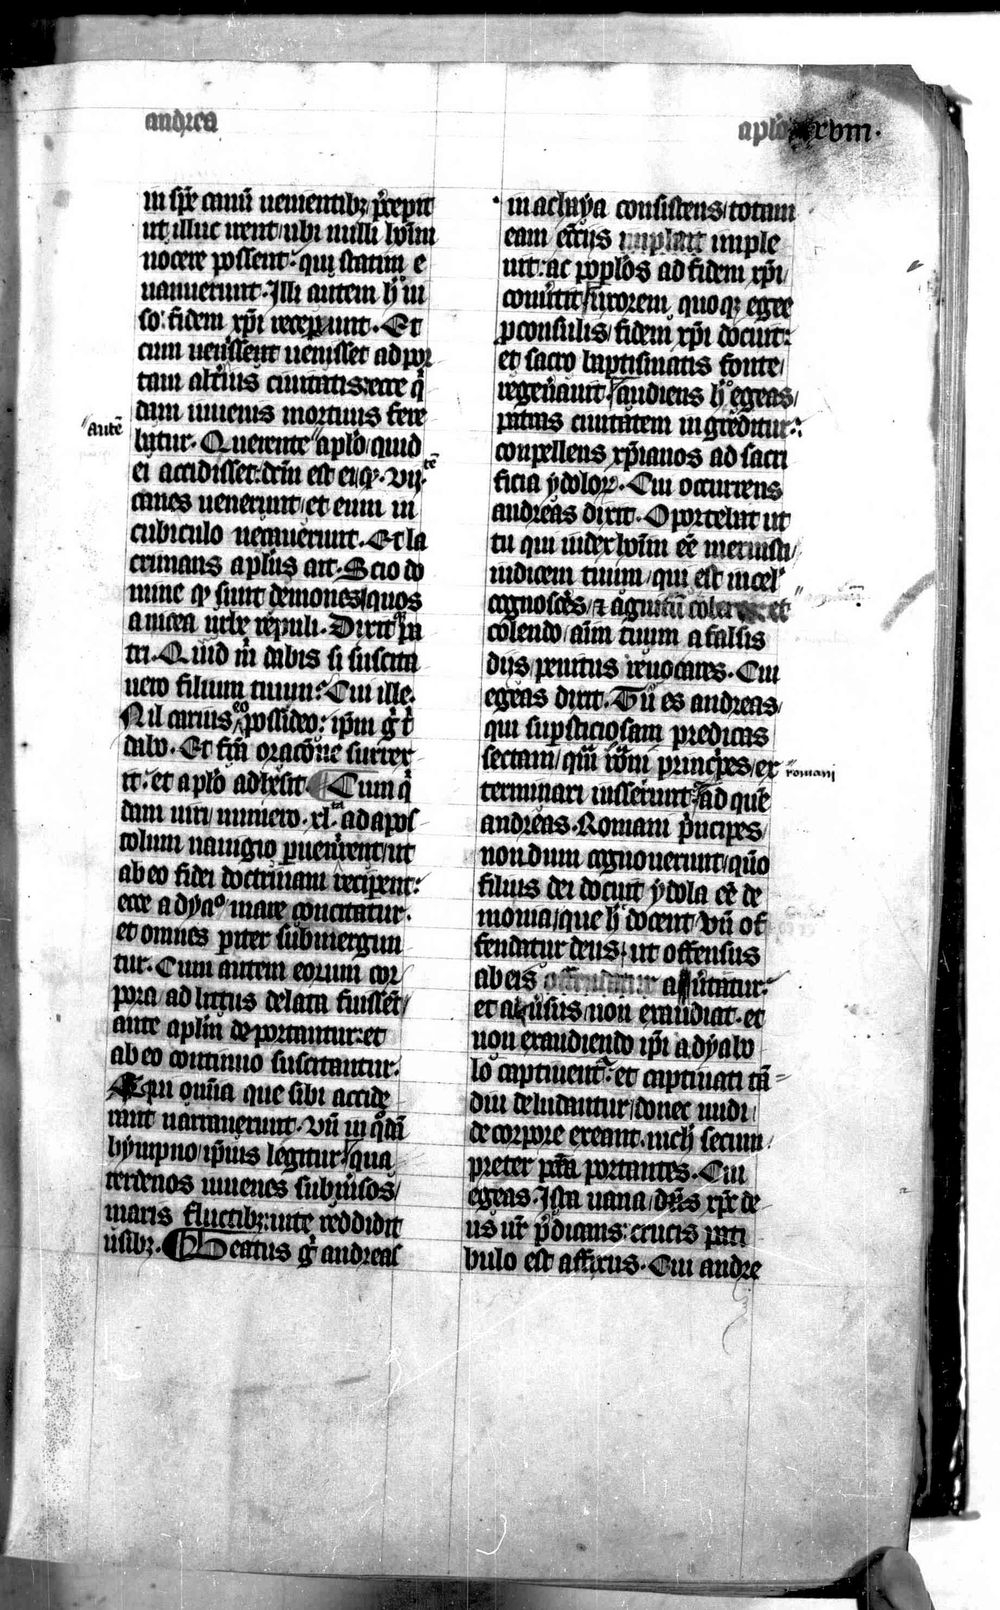 andrea
aplo xviii.
in spē canū uenientibȝ p̄cepit
ut illuc irent / ubi nulli hoīm
nocere possent: qui statim e
uanuerunt. Illi autem h̄ ui
so: fidem xp̄i receperunt. Et
cum uenissent uenisset ad por
tam alterius ciuitatis: ecce q̇
dam iuuenis mortuus fere
batur. Querente aplō / quid
autē
ei accidisset: dcm̄ est ei / qȝ. vij.
tē
canes uenerunt / et eum in
cubiculo necauerunt. Et la
crimans aplūs ait. Scio do
mine qȝ sunt demones / quos
a nicea urbe repuli. Dixit pa
tri. Quid m̄ dabis si suscita
uero filium tuum? Cui ille.
Nil carius possideo: ip̄m g̊ t̄
eo
dabo. Et fca orac̄one surrex
it: et aplō adhesit. Cum q̇
dam uiri / numero. xl. ad apos
ta
tolum nauigio peruenirent / ut
ab eo fidei doctrinam reciperent:
ecce a dyaᵒ mare concitatur.
et omnes pariter submergun
tur. Cum autem eorum cor
pora / ad littus delata fuissēt /
ante aplm̄ deportantur: et
ab eo continuo suscitantur.
Qui omīa que sibi accide
runt narrauerunt. Vn̄ in qdā
hympno / ip̄ius legitur / qua
terdenos iuuenes submisos /
maris fluctibȝ: uite reddidit
usibȝ. Beatus g̊ andreas
in achaya consistens / totam
eam ecc̄iis impleuit imple
uit: ac poplōs ad fidem xp̄i /
conuertit / uxorem quoqȝ egee
p̄consulis / fidem xp̄i docuit:
et sacro baptismatis fonte /
regenauit. audiens h̄ egeas /
patras ciuitatem ingreditur:
conpellens xp̄ianos ad sacri
ficia ydolorꝫ. Cui occurrens
andreas dixit. Oportebat ut
tu qui iudex hoīm eē meruisti /
iudicem tuum / qui est in cel'
cognosceres / & agnitū coleres et
colendo / aīm tuum a falsis
diis / penitus reuocares. Cui
egeas dixit. Tu es andreas /
qui supsticiosam predicas
sectam / quā rōni principes / ex
romani
terminari iusserunt. ad quē
andreas. Romani p̄ncipes /
nondum cognouerunt / qūo
filius dei docuit ydola eē de
monia / que h̄ docent / vn̄ of
fendatur deus: ut offensus
ab eis offendatur auertatur:
et auersus / non exaudiat. et
non exaudiendo ip̄i a dyabo
lo captiuent̄. et captiuati tā=
diu deludantur / donec nudi /
de corpore exeant. nich̄ secum /
preter pctā portantes. Cui
egeas. Ista uana / dn̄s xp̄c de
us ur̄ p̄dicans: crucis pati
bulo est affixus. Cui andre